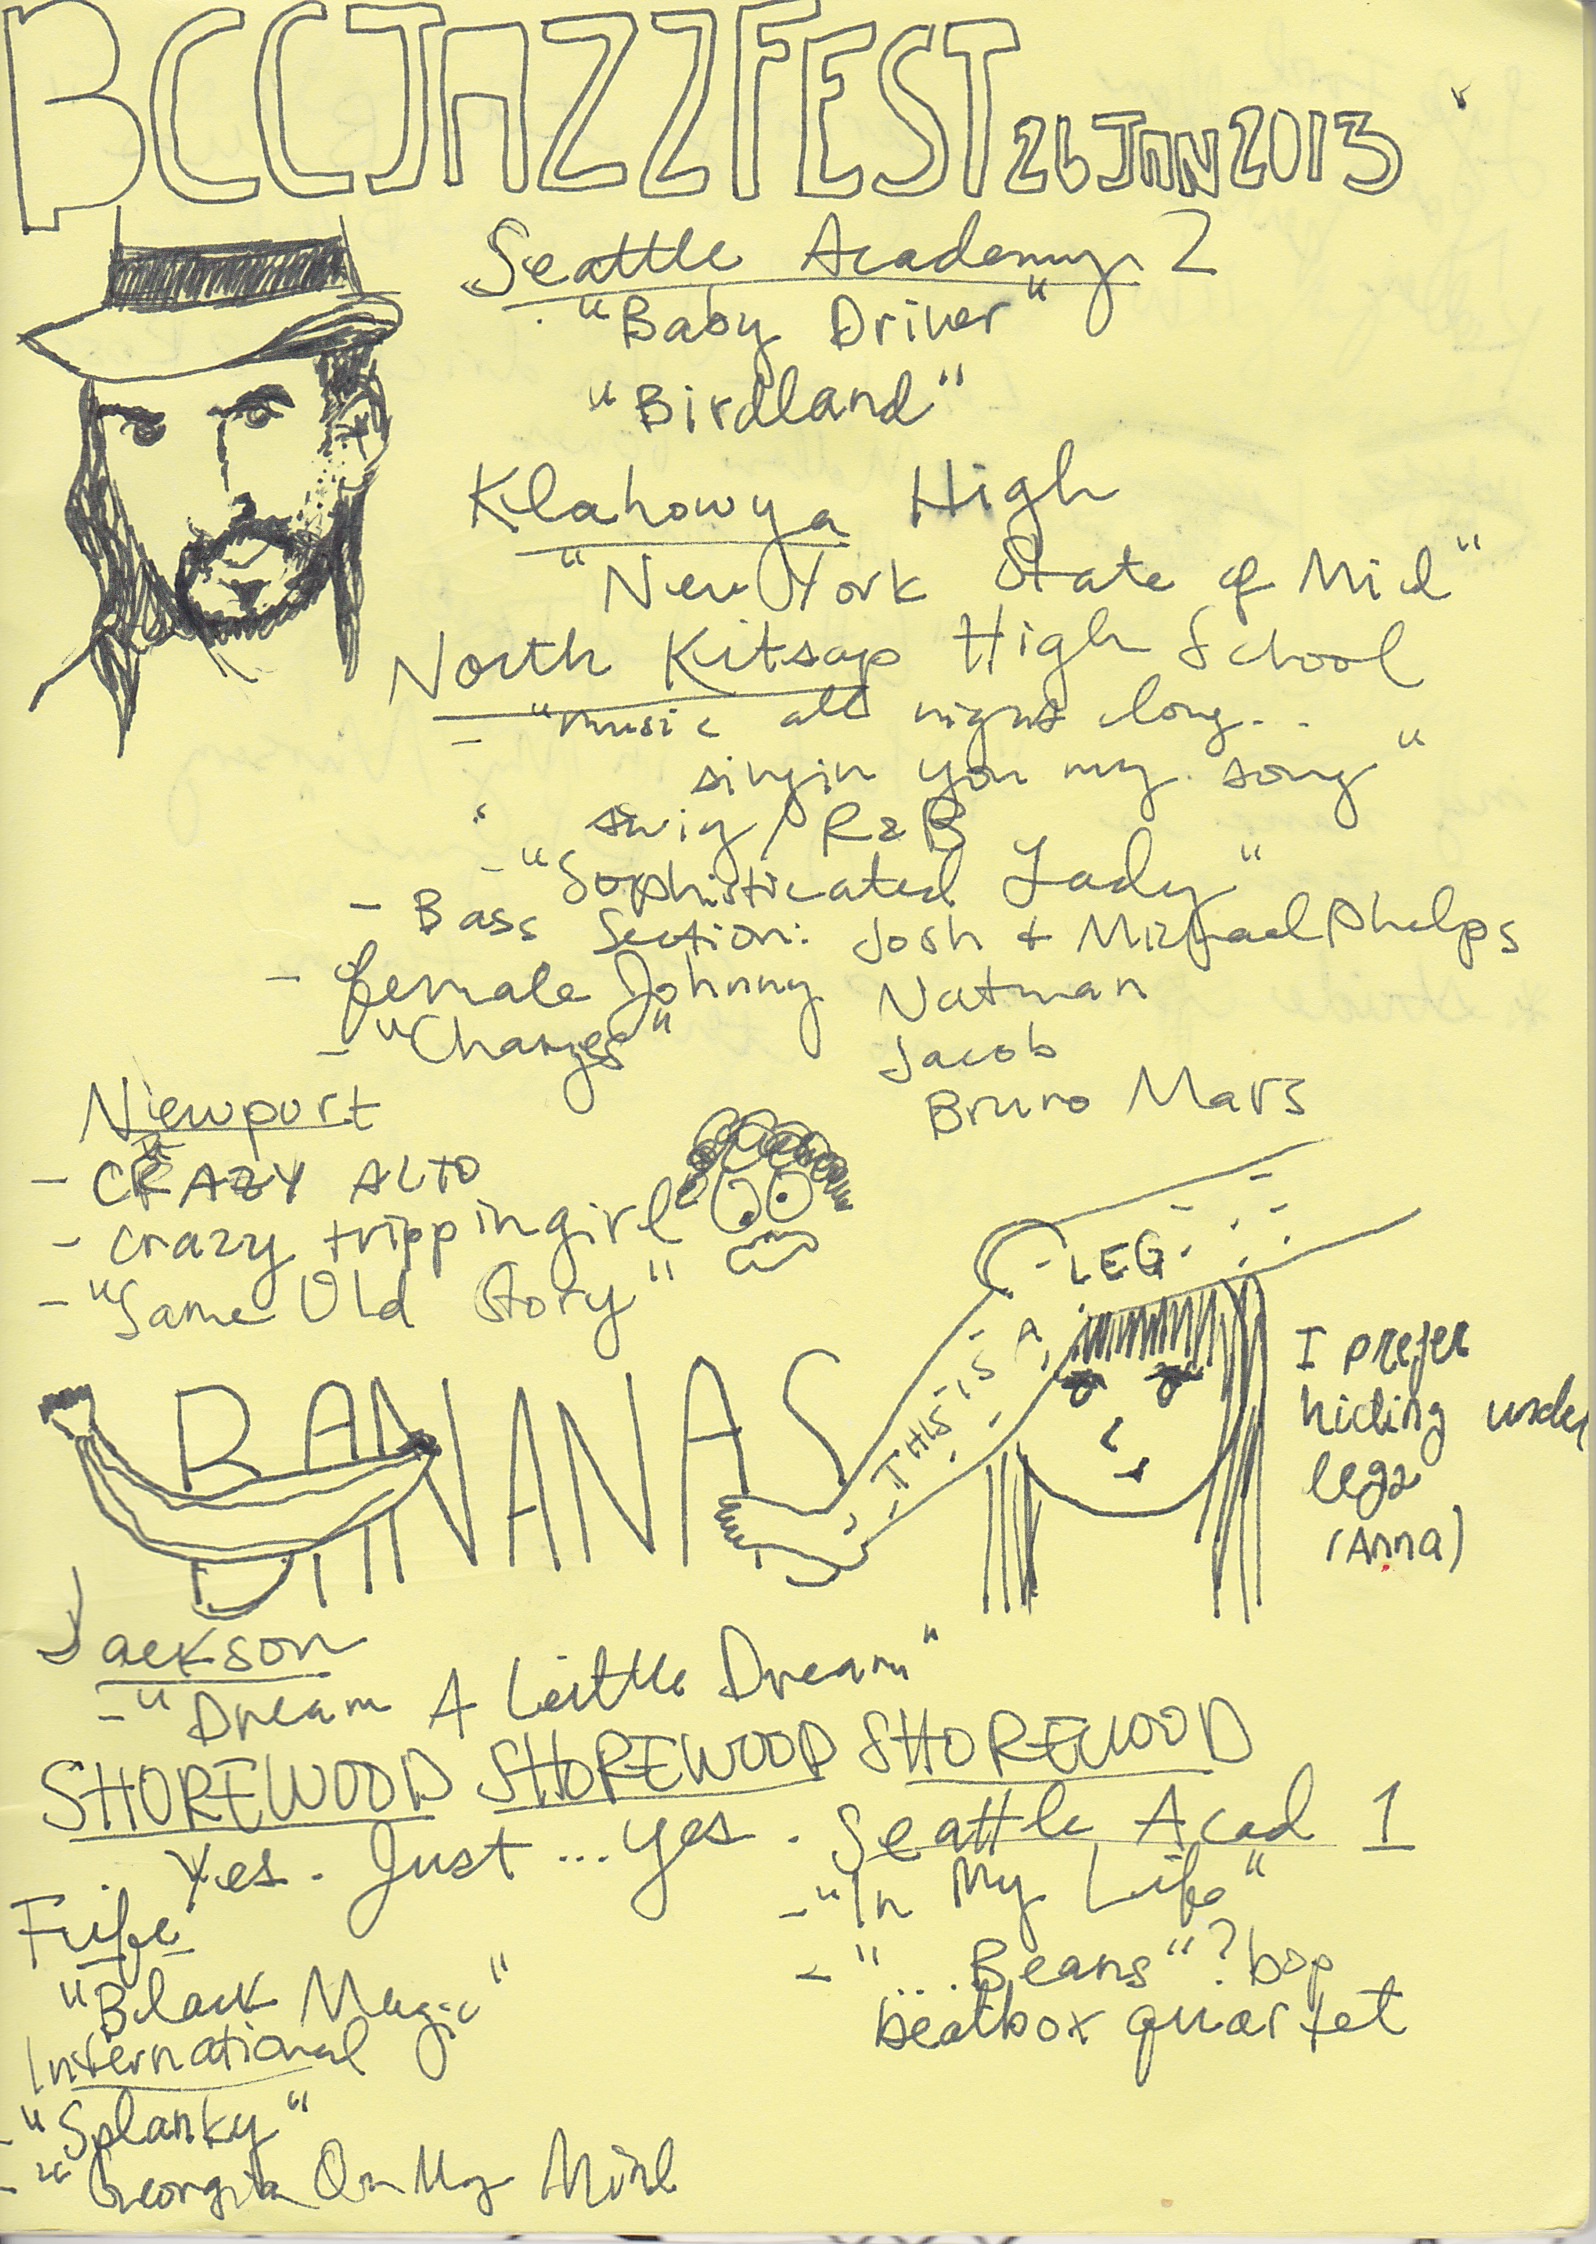 BCCJAZZFEST 26 JAN 2013
Seattle Academy 2
"Baby Driver"
"Birdland"
Klahowya High
"New York State of Mid"
North Kitsap High School
- "music all night long...
singin you my song"
swig/R&B
- "Sophisticated Lady"
- Bass Section: Josh + Michael Phelps
- female Johnny Natman
- "Changes" Jacob
Bruno Mars
Newport
- CRAZY ALTO
- crazy trippin girl
- "Same Old Story"
THIS IS A LEG
I prefer
hiding under
legs
(Anna)
BANANAS
Jackson
- "Dream A Little Dream"
SHOREWOOD SHOREWOOD SHOREWOOD
. Yes. Just ... yes.
Seattle Acad 1
- "In My Life"
- "...Beans"? bop
beatbox quartet
Fife
"Black Magic"
International
- "Splanky"
- "Georgia On My Mind